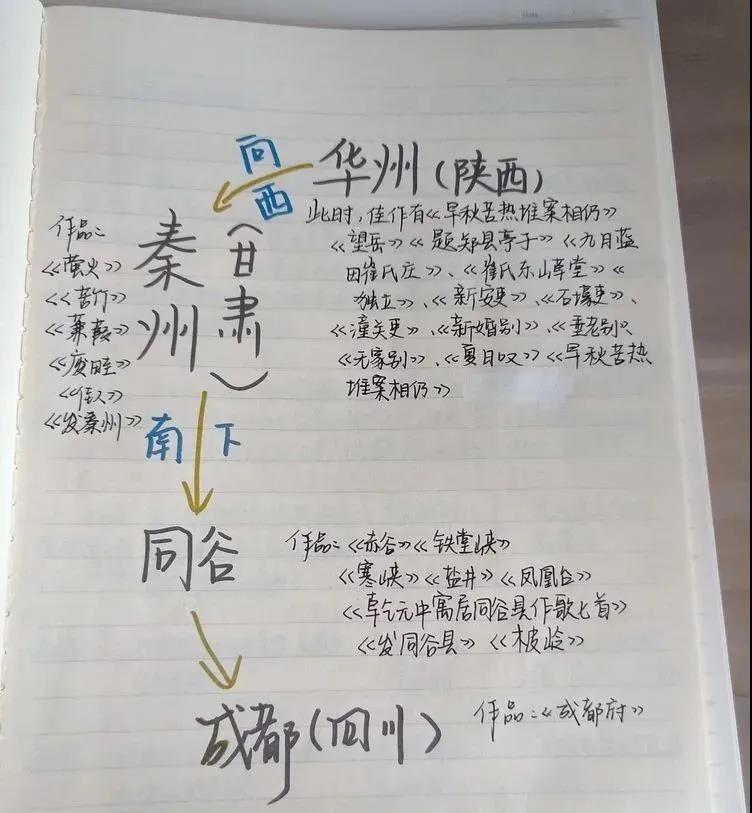 向西
华州(陕西)
此时,佳作有《早秋苦热堆案相仍》
《望岳》《题郑县亭子》《九月蓝
田崔氏庄》、《崔氏东山草堂》《
独立》、《新安吏》、《石壕吏》、
《潼关吏》、《新婚别》、《垂老别》、
《无家别》、《夏日叹》《早秋苦热
堆案相仍》
秦州(甘肃)
作品:
《萤火》
《苦竹》
《蒹葭》
《废畦》
《佳人》
《发秦州》
南下
同谷
作品:《赤谷》《铁堂峡》
《寒峡》《盐井》《凤凰台》
《乾元中寓居同谷县作歌七首》
《发同谷县》《木皮岭》
成都(四川)
作品:《成都府》